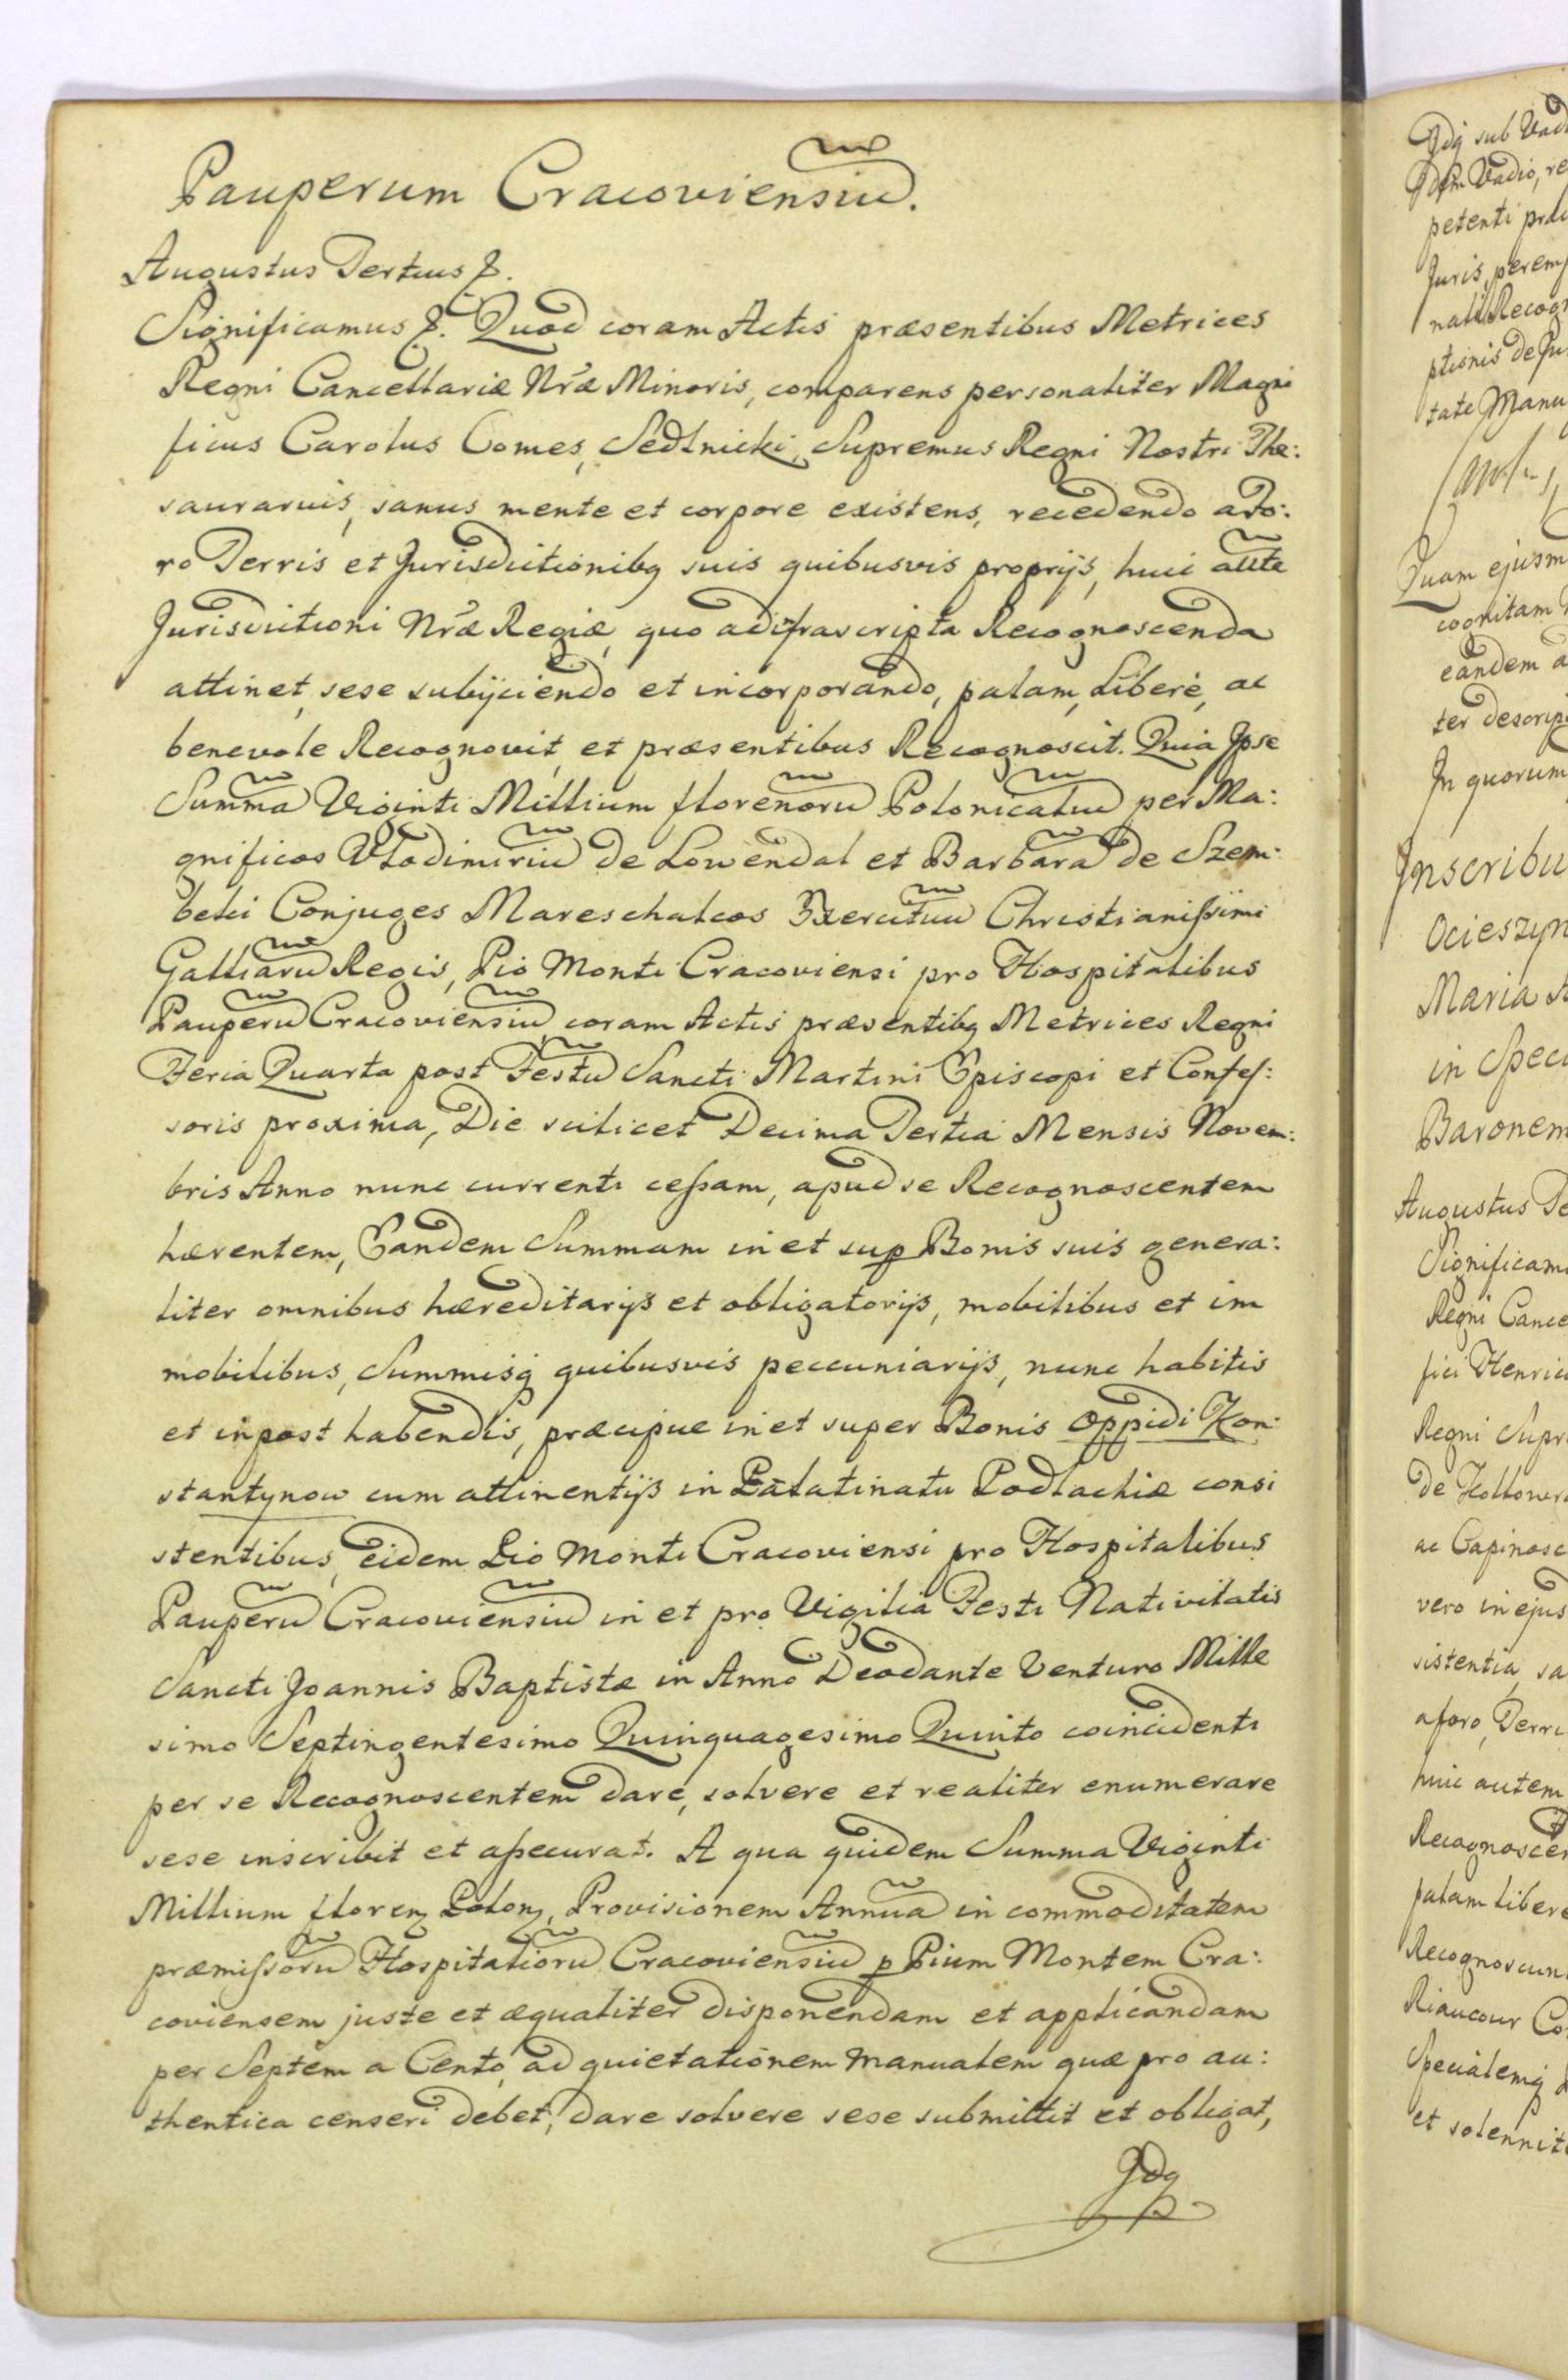 Pauperum Cracoviensiu.
Augustus Tertius &.
Significamus &. Quod coram Actis præsentibus Metrices
Regni Cancellariæ Nræ Minoris, comparens personaliter Magni
ficus Carolus Comes, Sedlnicki, Supremus Regni Nostri The:
saurarius, sanus mente et corpore existens, recedendo a Fo:
ro Terris et Jurisdictionibq suis quibusvis proprijs, huic autte
Jurisdictioni Nræ Regiæ, quo ad ifrascripta Recognoscenda
attinet, sese subijciendo et incorporando, palam, Liberè, ac
benevole Recognovit, et præsentibus Recognoscit. Quia Ipse
Summa Viginti Millium florenoru Polonicaliu per Ma:
gnificos Vlodimiriu de Lowendal et Barbara de Szem:
beki Conjuges Mareschalcos Exercituu Christianissimi
Galliaru Regis, Pio Monti Cracoviensi pro Hospitalibus
Pauperu Cracoviensiu coram Actis præsentibq Metrices Regni
Feria Quarta post Festu Sancti Martini Episcopi et Confes:
soris proxima, Die scilicet Decima Tertia Mensis Novem:
bris Anno nunc currenti cessam, apud se Recognoscentem
hærentem, Eandem Summam in et sup Bonis suis genera:
liter omnibus hæreditarijs et obligatorijs, mobilibus et im
mobilibus, Summisq quibusvis peccuniarijs, nunc habitis
et inpost habendis, præcipue in et super Bonis Oppidi Kon:
stantynow cum attinentijs in Palatinatu Podlachiæ consi
stentibus, eidem Pio Monti Cracoviensi pro Hospitalibus
Pauperu Cracoviensiu in et pro Vigilia Festi Nativitatis
Sancti Joannis Baptistæ in Anno Deo dante Venturo Mille
simo Septingentesimo Quinquagesimo Quinto coincidenti
per se Recognoscentem dare, solvere et realiter enumerare
sese inscribit et assecurat. A qua quidem Summa Viginti
Millium floren Polon, Provisionem Annua in commoditatem
præmissoru Hospitalioru Cracoviensiu p Pium Montem Cra:
coviensem juste et æqualiter disponendam et applicandam
per Septem a Cento, ad quietationem manualem quæ pro au:
thentica censeri debet, dare solvere sese submittit et obligat,
Idq
Idq sub Vad
Vadio, re
petenti præ
Juris, peremp
nali Recogn
ptionis de Ju
tate Manu
Quam ejusm
cognitam
eandem a
ter descrip
In quorum
Inscribu
Ocieszyn
Maria A
in Speci
Baronem
Augustus Te
Significam
Regni Cance
fici Henric
Regni Supr
de
ac Capinosc
vero in ejus
sistentia, sa
a foro, Terri
huic autem
Recognoscen
palam libere
Recognoscun
Riaucour Co
Specialemq
et solennit